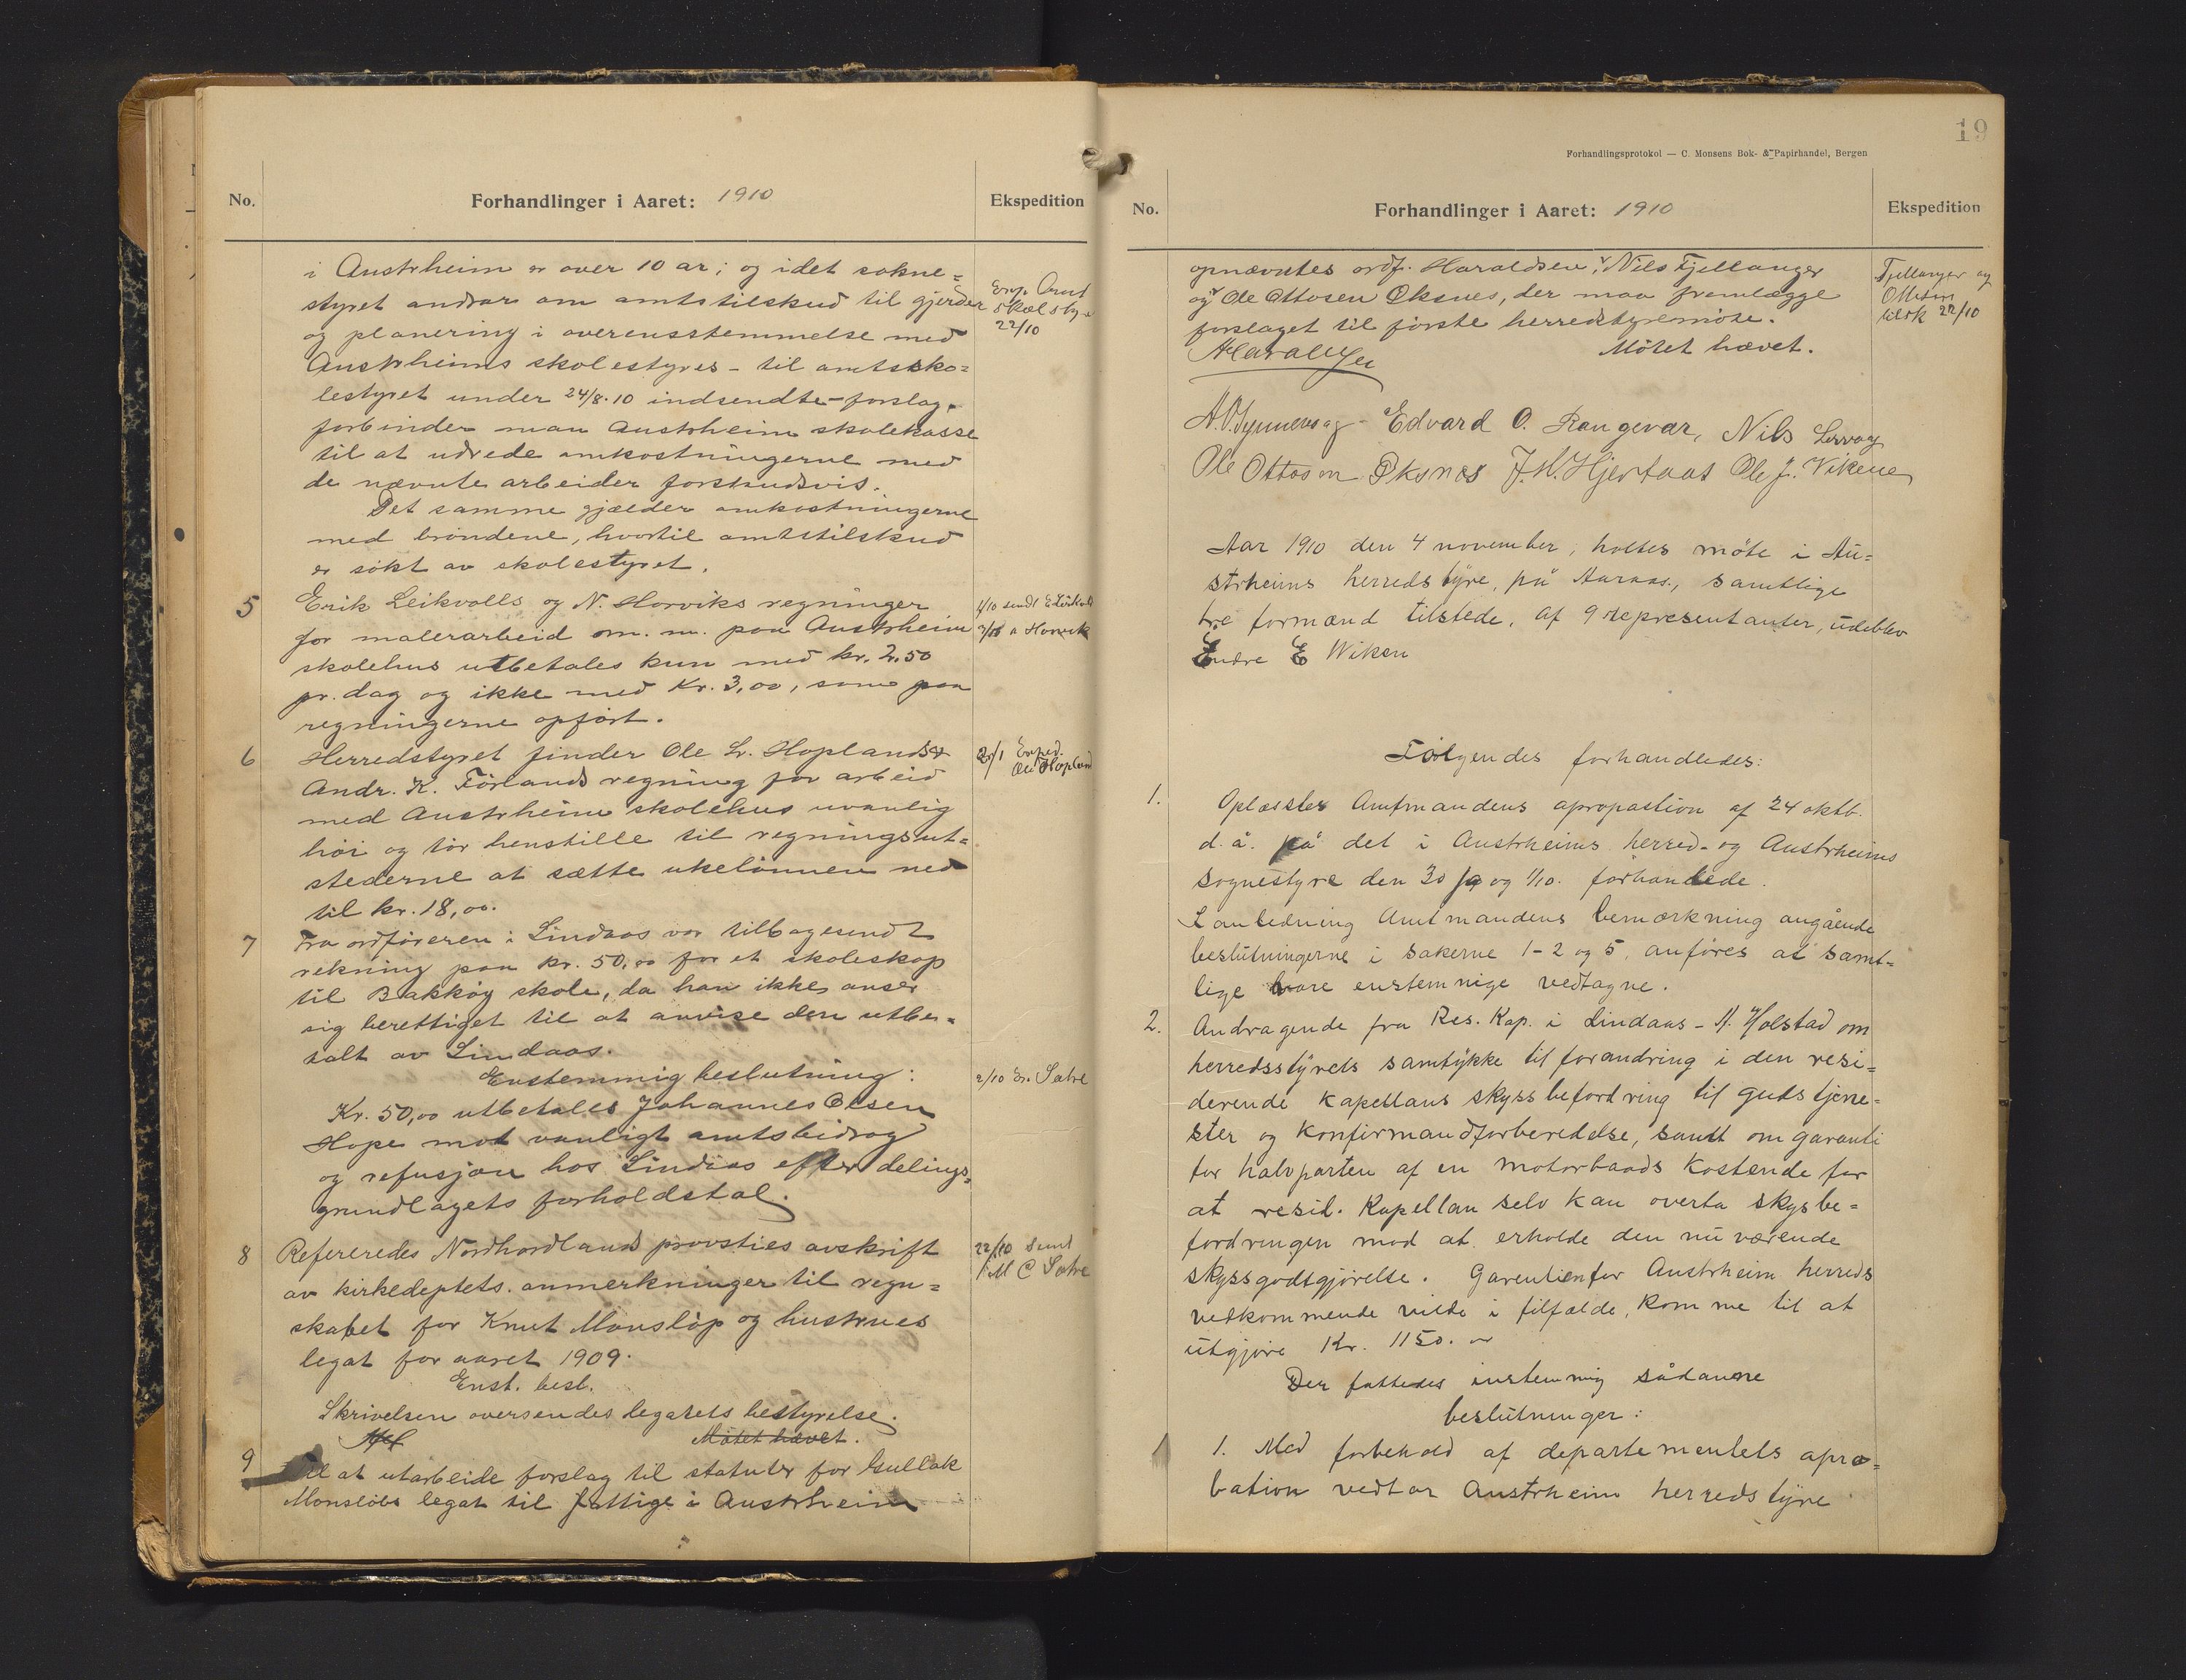 No.
Forhandlinger i Aaret: 1910
Ekspedition
i Austrheim er over 10 ar; og idet sokne=
styret andrar om amtstilskud til gjerder
og planering i overensstemmelse med
Austrheims skolestyres - til amtssko=
lestyret under 24/8.10 indsendte - forslag,
forbinder man Austrheim skolekasse
til at udrede omkostningerne med
de nævnte arbeider forskudsvis.
Det samme gjælder omkostningerne
med brøndene, hvortil amtstilskud
er søkt av skolestyret.
Amt
skolsty.
22/10
5
Erik Leikvolls og N. Horviks regninger
for malerarbeid om. m. paa Austrheim
skolehus utbetales kun med kr. 2.50
pr. dag og ikke med Kr. 3,00, som paa
regningerne opført.
6
Herredstyret finder Ole Hoplands
Andr. K. Førlands regning for arbeid
med Austrheim skolehus uvanlig
høi og tør henstille til regningsut=
stederne at sætte ukelønnen ned
til kr. 18,00.
7
Fra ordføreren i Lindaas var tilbagesendt
rekning paa kr. 50,00 for et skoleskap
til Bakkøy skole, da han ikke anser
sig berettiget til at anvise den utbe=
talt av Lindaas.
Enstemmig beslutning:
2/10 Sætre
Kr. 50,00 utbetales Johannes Olsen
Hope mot vanligt amtsbidrag
og refusjon hos Lindaas efter delings=
grundlagets forholdstal.
8
Refereredes Nordhordlands provsties avskrift
av kirkedeptets. anmerkninger til regn=
skabet for Knut Monsløp og hustrues
legat for aaret 1909.
22/10 sendt
M C Sætre
Enst. besl.
Skrivelsen oversendes legatets bestyrelse.
Møtet hævet.
9
Til at utarbeide forslag til statuter for Gullak
Monsløbs legat til fattige i Austrheim
19
Forhandlingsprotokol — C. Monsens Bok- & Papirhandel, Bergen
No.
Forhandlinger i Aaret: 1910
Ekspedition
opnævntes ordf. Haraldsen, Nils Fjellanger
og Ole Ottosen Øksnes, der maa fremlægge
forslaget til første herredstyremøte.
Møtet hævet.
Fjellanger og
Ottosen
tilsk 22/10
AHaraldsen
Edvard O. Rangevær, Nils
Ole Ottosen Øksnes J. H. Hjertaas Ole J. Vikene
Aar 1910 den 4 november, holtes møte i Au=
strheims herredstyre, på Aaraas., samtlige
tre formænd tilstede, af 9 representanter, udeblev
Endre E Wiken
Følgendes forhandledes:
1.
Oplæstes Amtmandens apropastion af 24 oktb.
d. å. på det i Austrheims herred- og Austrheims
sognestyre den 30/9 og 1/10. forhandlede.
I anledning Amtmandens bemærkning angående
beslutningerne i sakerne 1-2 og 5, anføres at samt=
lige vare enstemmige vedtagne.
2.
Andragende fra Res. Kap. i Lindaas - A. Holstad om
herredsstyrets samtykke til forandring i den resi=
derende kapellans skyssbefordring til gudstjene=
ster og konfirmandforberedelse, samt om garanti
for halvparten af en motorbaads kostende for
at resid. Kapellan selv kan overta skysbe=
fordringen mod at erholde den nu værende
skyssgodtgjørelse. Garentien for Austrheim herreds
vedkommende vilde i tilfælde, komme til at
utgjøre Kr. 1150.
Der fattedes enstemmig sådanne
beslutninger:
1. Med forbehold af departementets apro=
bation vedtar Austrheim herredstyre